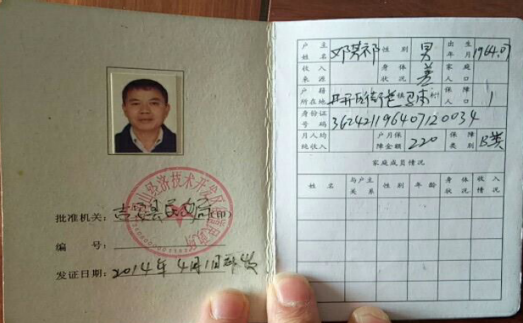 批准机关：吉安县民政局(印)
编 号：
发证日期：2014年4月1日
户主姓名 性别 男 出生年月 1964.07
收入来源 身体状况 家庭人口
户籍所在地 保障人口 1
身份证号码 362421196407120034
月人均纯收入 户月保障金额 220 保障类别 B类
家庭成员情况
姓名 与户主关系 性别 年龄 身体状况 收入情况